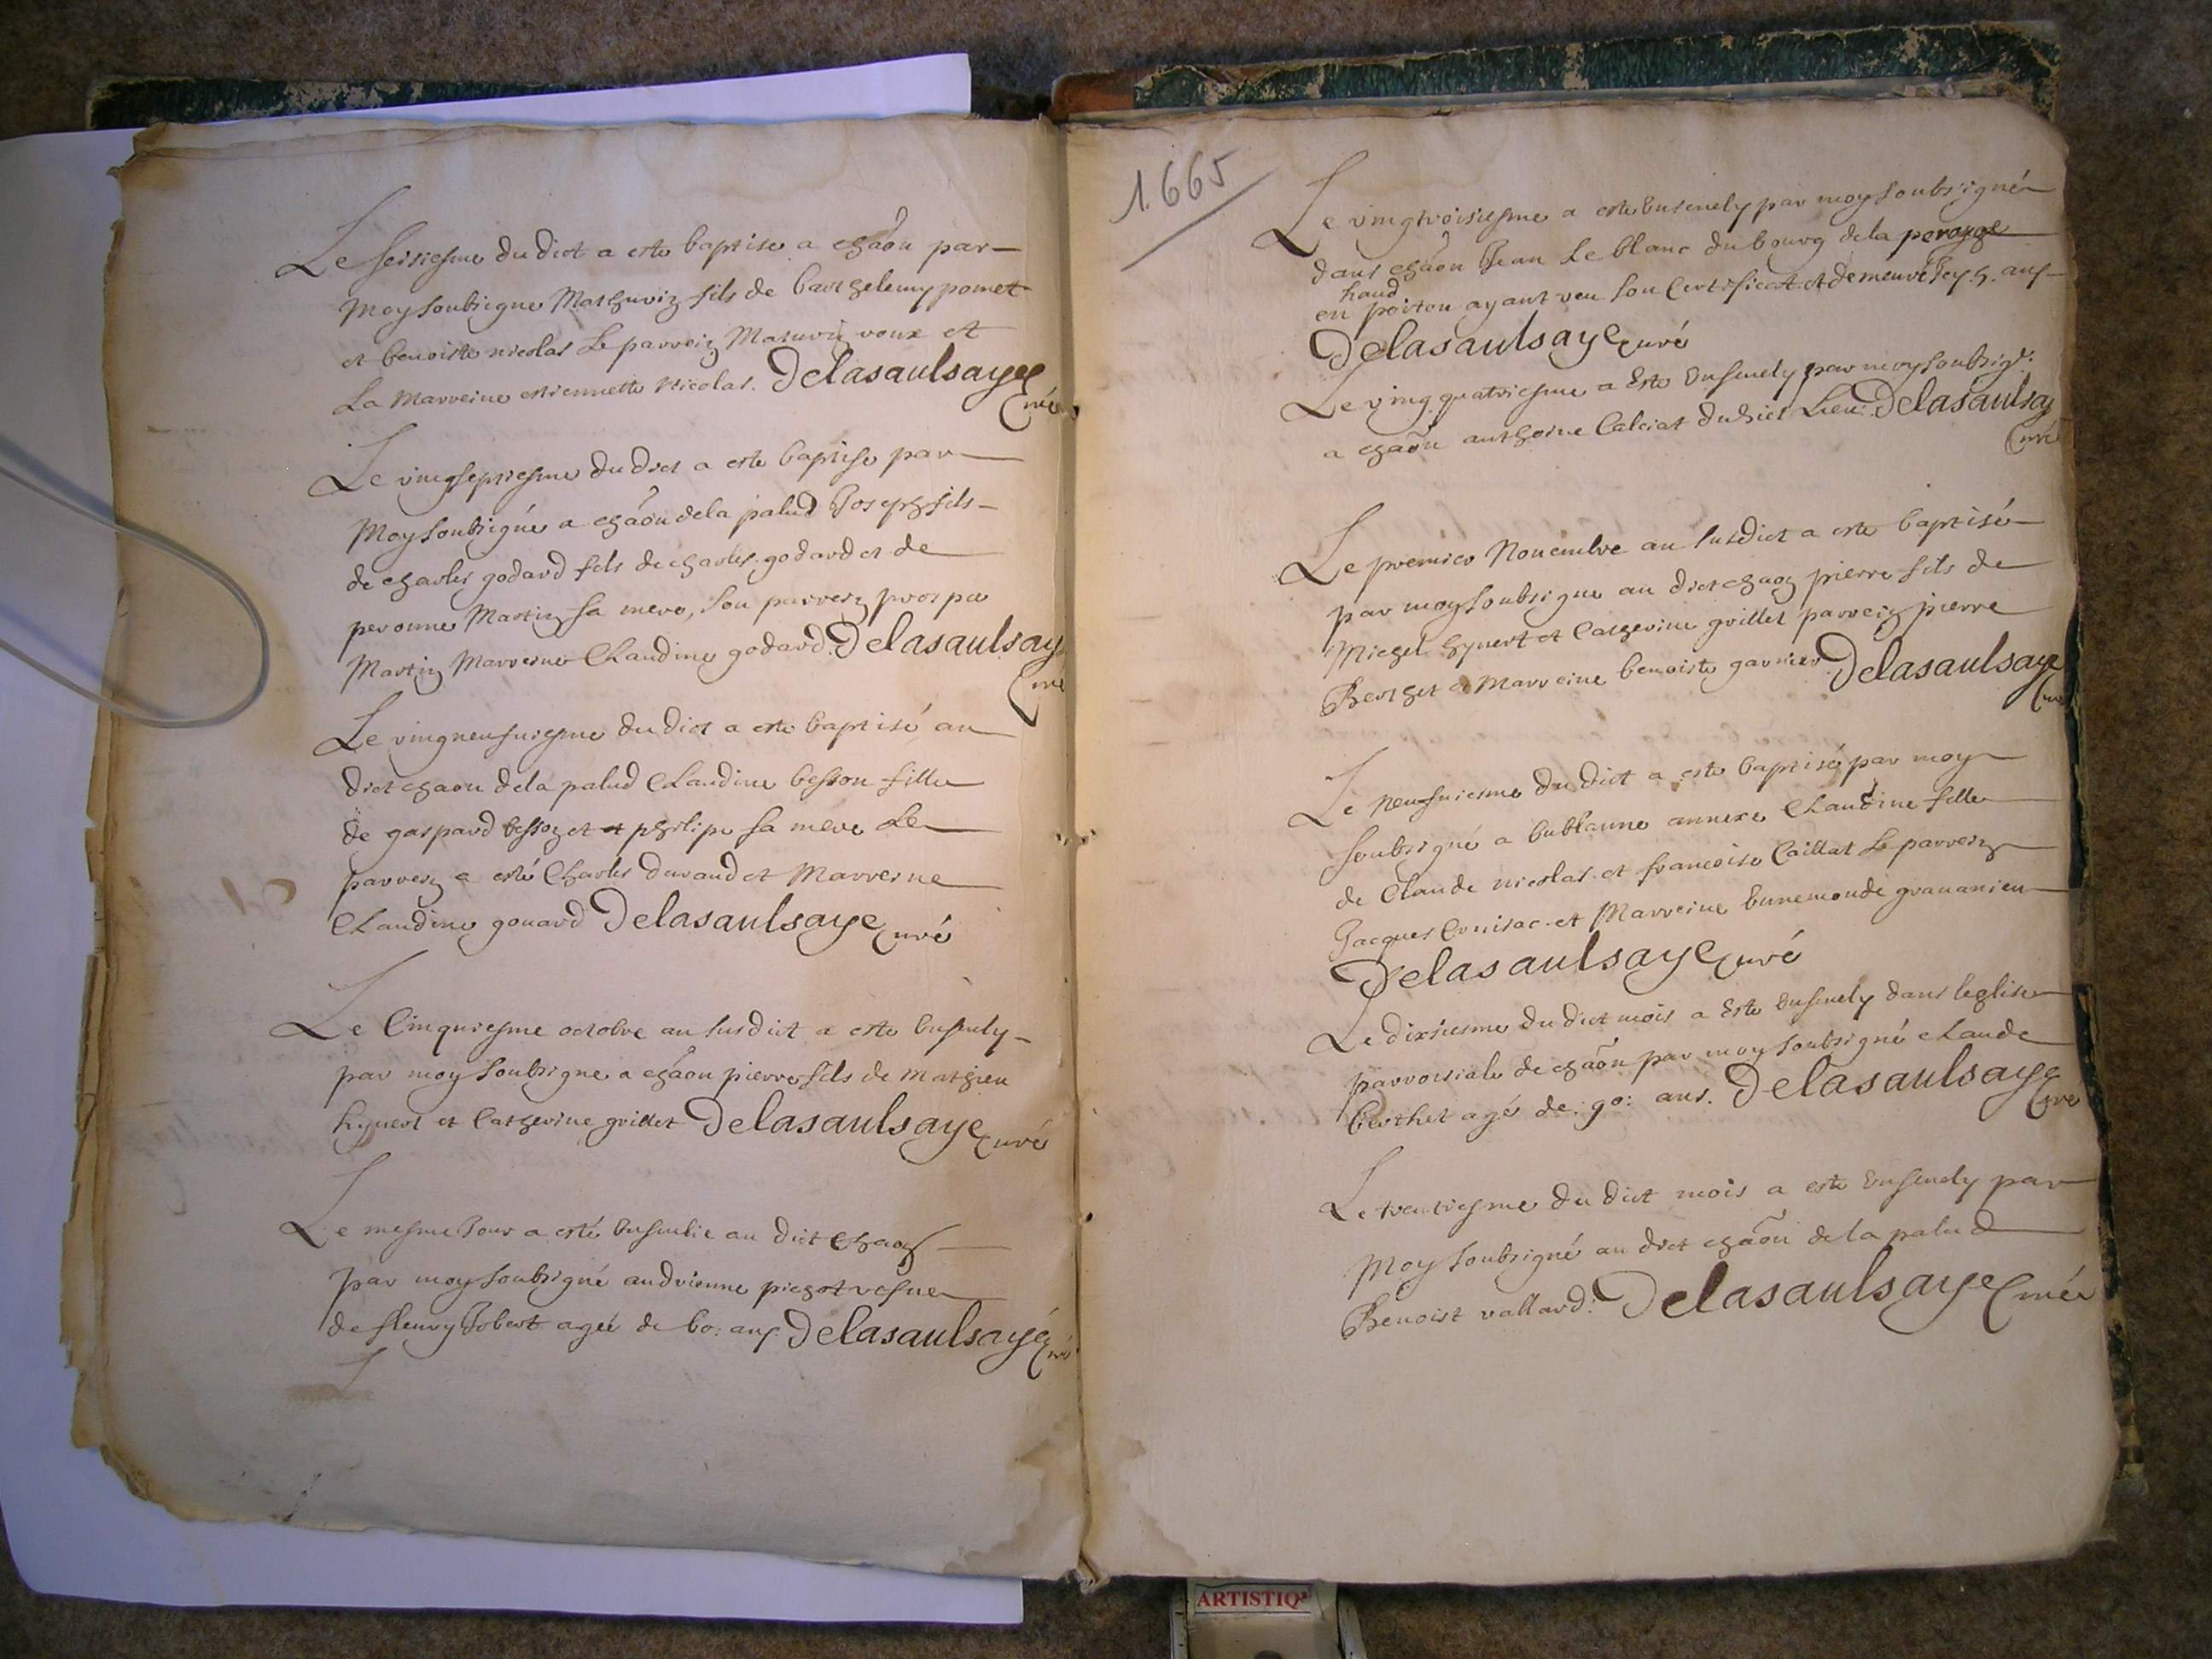 Le seisiesme du dict a este baptise a chaon par
moy soubsigne Mathuriz fils de barthelemy pomet
et benoiste nicolas Le parreiz Maturiz roux et
La Marreine estiennette Nicolas. Delasaulsaye
Curé
Le vingseptiesme du dict a este baptise par
Moy soubsigné a chaon de la palud Joseph fils
de charles godard fils de charles godard et de
peronne Martiz sa mere, son parreiz prosper
Martiz Marreine Claudine godard. Delasaulsaye
Curé
Le vingneufuiesme du dict a este baptisé au
dict chaon dela palud Claudine besson fille
de gaspard bessoz et et philipe sa mere Le
parreiz a esté Charles durand et Marreine
Claudine gouard Delasaulsaye Curé
Le Cinquiesme octobre an susdict a este ensevely
par moy soubsigne a chaon pierre fils de mathieu
hyvert et Catherine grillet Delasaulsaye Curé
Le mesme Jour a esté ensevelie au dict Chaoz
par moy soubsigné andrienne pichot vefve
de fleury Robert agée de 60: ans. Delasaulsaye Curé
1665
Le vingtroisiesme a este ensevely par moy soubsigné
dans chaon Jean Le blanc du bourg de la
haud
en poitou ayant veu son Certificat et demeuré Icy 5. ans
Delasaulsaye Curé
Le vingquatriesme a Este ensevely par moy soubsigé:
a chaon anthoine Calciat dudict Lieu. Delasaulsay
Curé
Le premier Novembre an susdict a este baptisé
par moy soubsigne au dict chaoz pierre fils de
Michel hyvert et Catherine grillet parreiz pierre
Berthet et Marreine benoiste garnier Delasaulsaye
Curé
Le neufuiesme du dict a este baptisé par moy
soubsigné a bublanne annexe Claudine fille
de Claude nicolas et francoise Caillat Le parreiz
Jacques Convisac et Marreine bunemonde gravanieu
Delasaulsaye Curé
Le dixiesme du dict mois a Este ensevely dans leglise
parroisiale de chaon par moy soubsigné claude
berthet agé de: 90: ans. Delasaulsaye
Curé
Le trentiesme du dict mois a este ensevely par
Moy soubsigné au dict chaon de la palud
Benoist vallard. Delasaulsaye Curé
ARTISTIQ